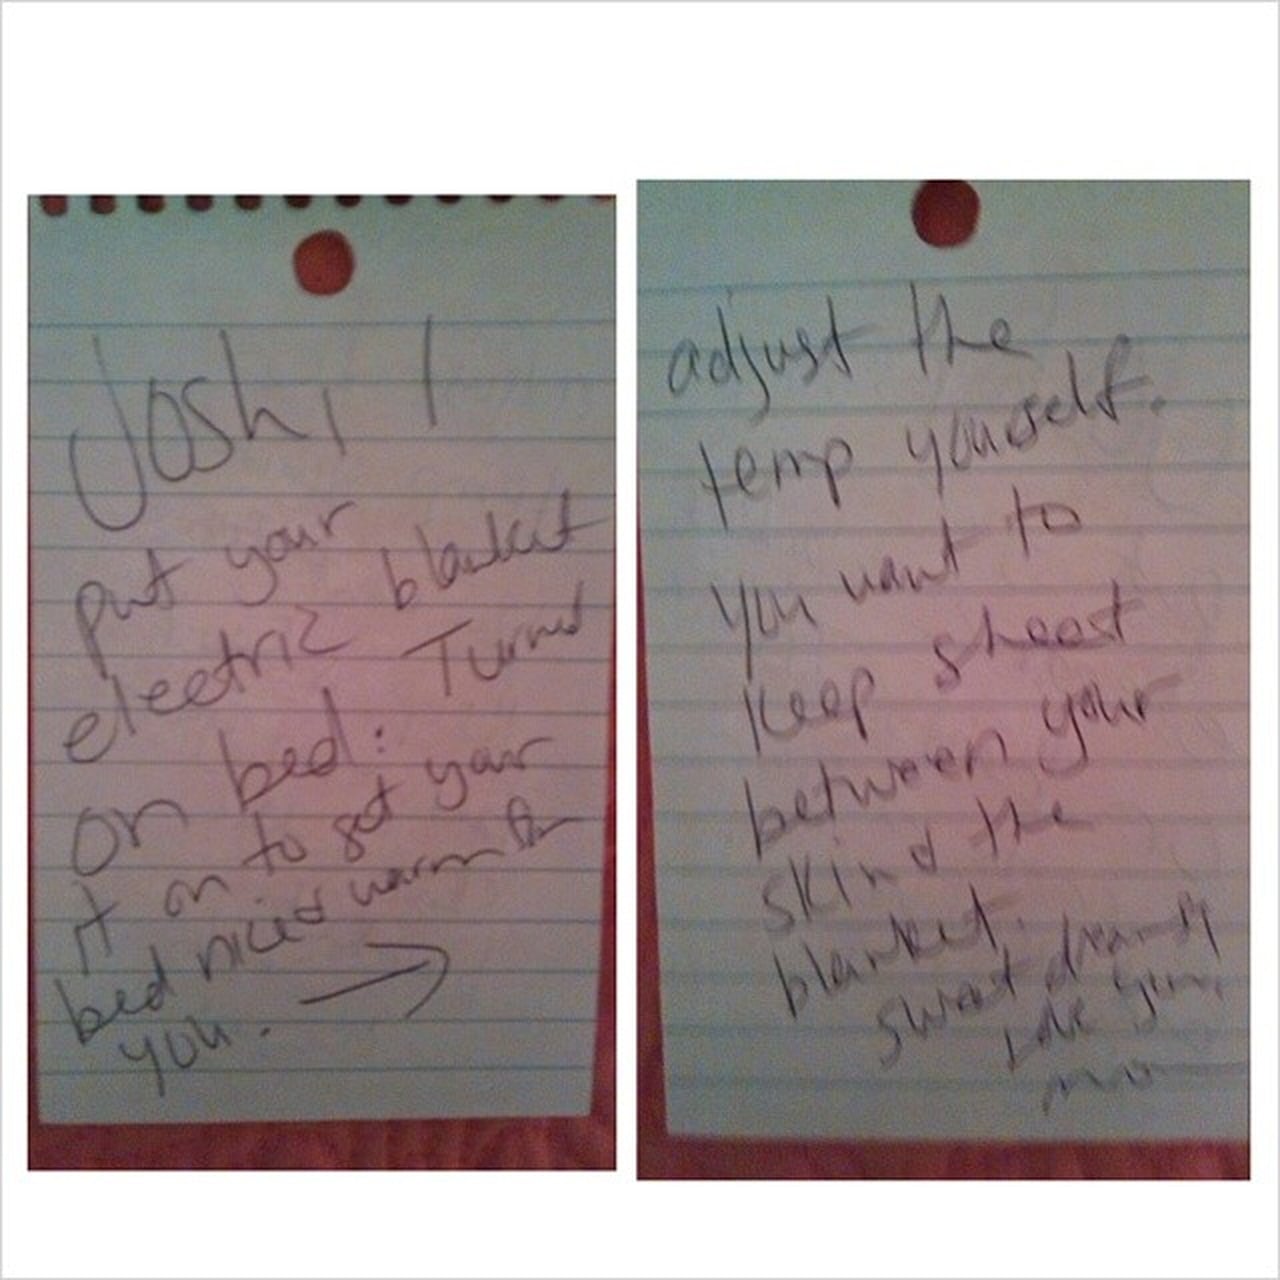 Josh, I
put your
electric blanket
on bed: Turned
it on to get your
bed nice & warm for
you. →
adjust the
temp yourself.
You want to
keep sheest
between your
skin & the
blanket.
Sweet dreams,
Love you,
mom